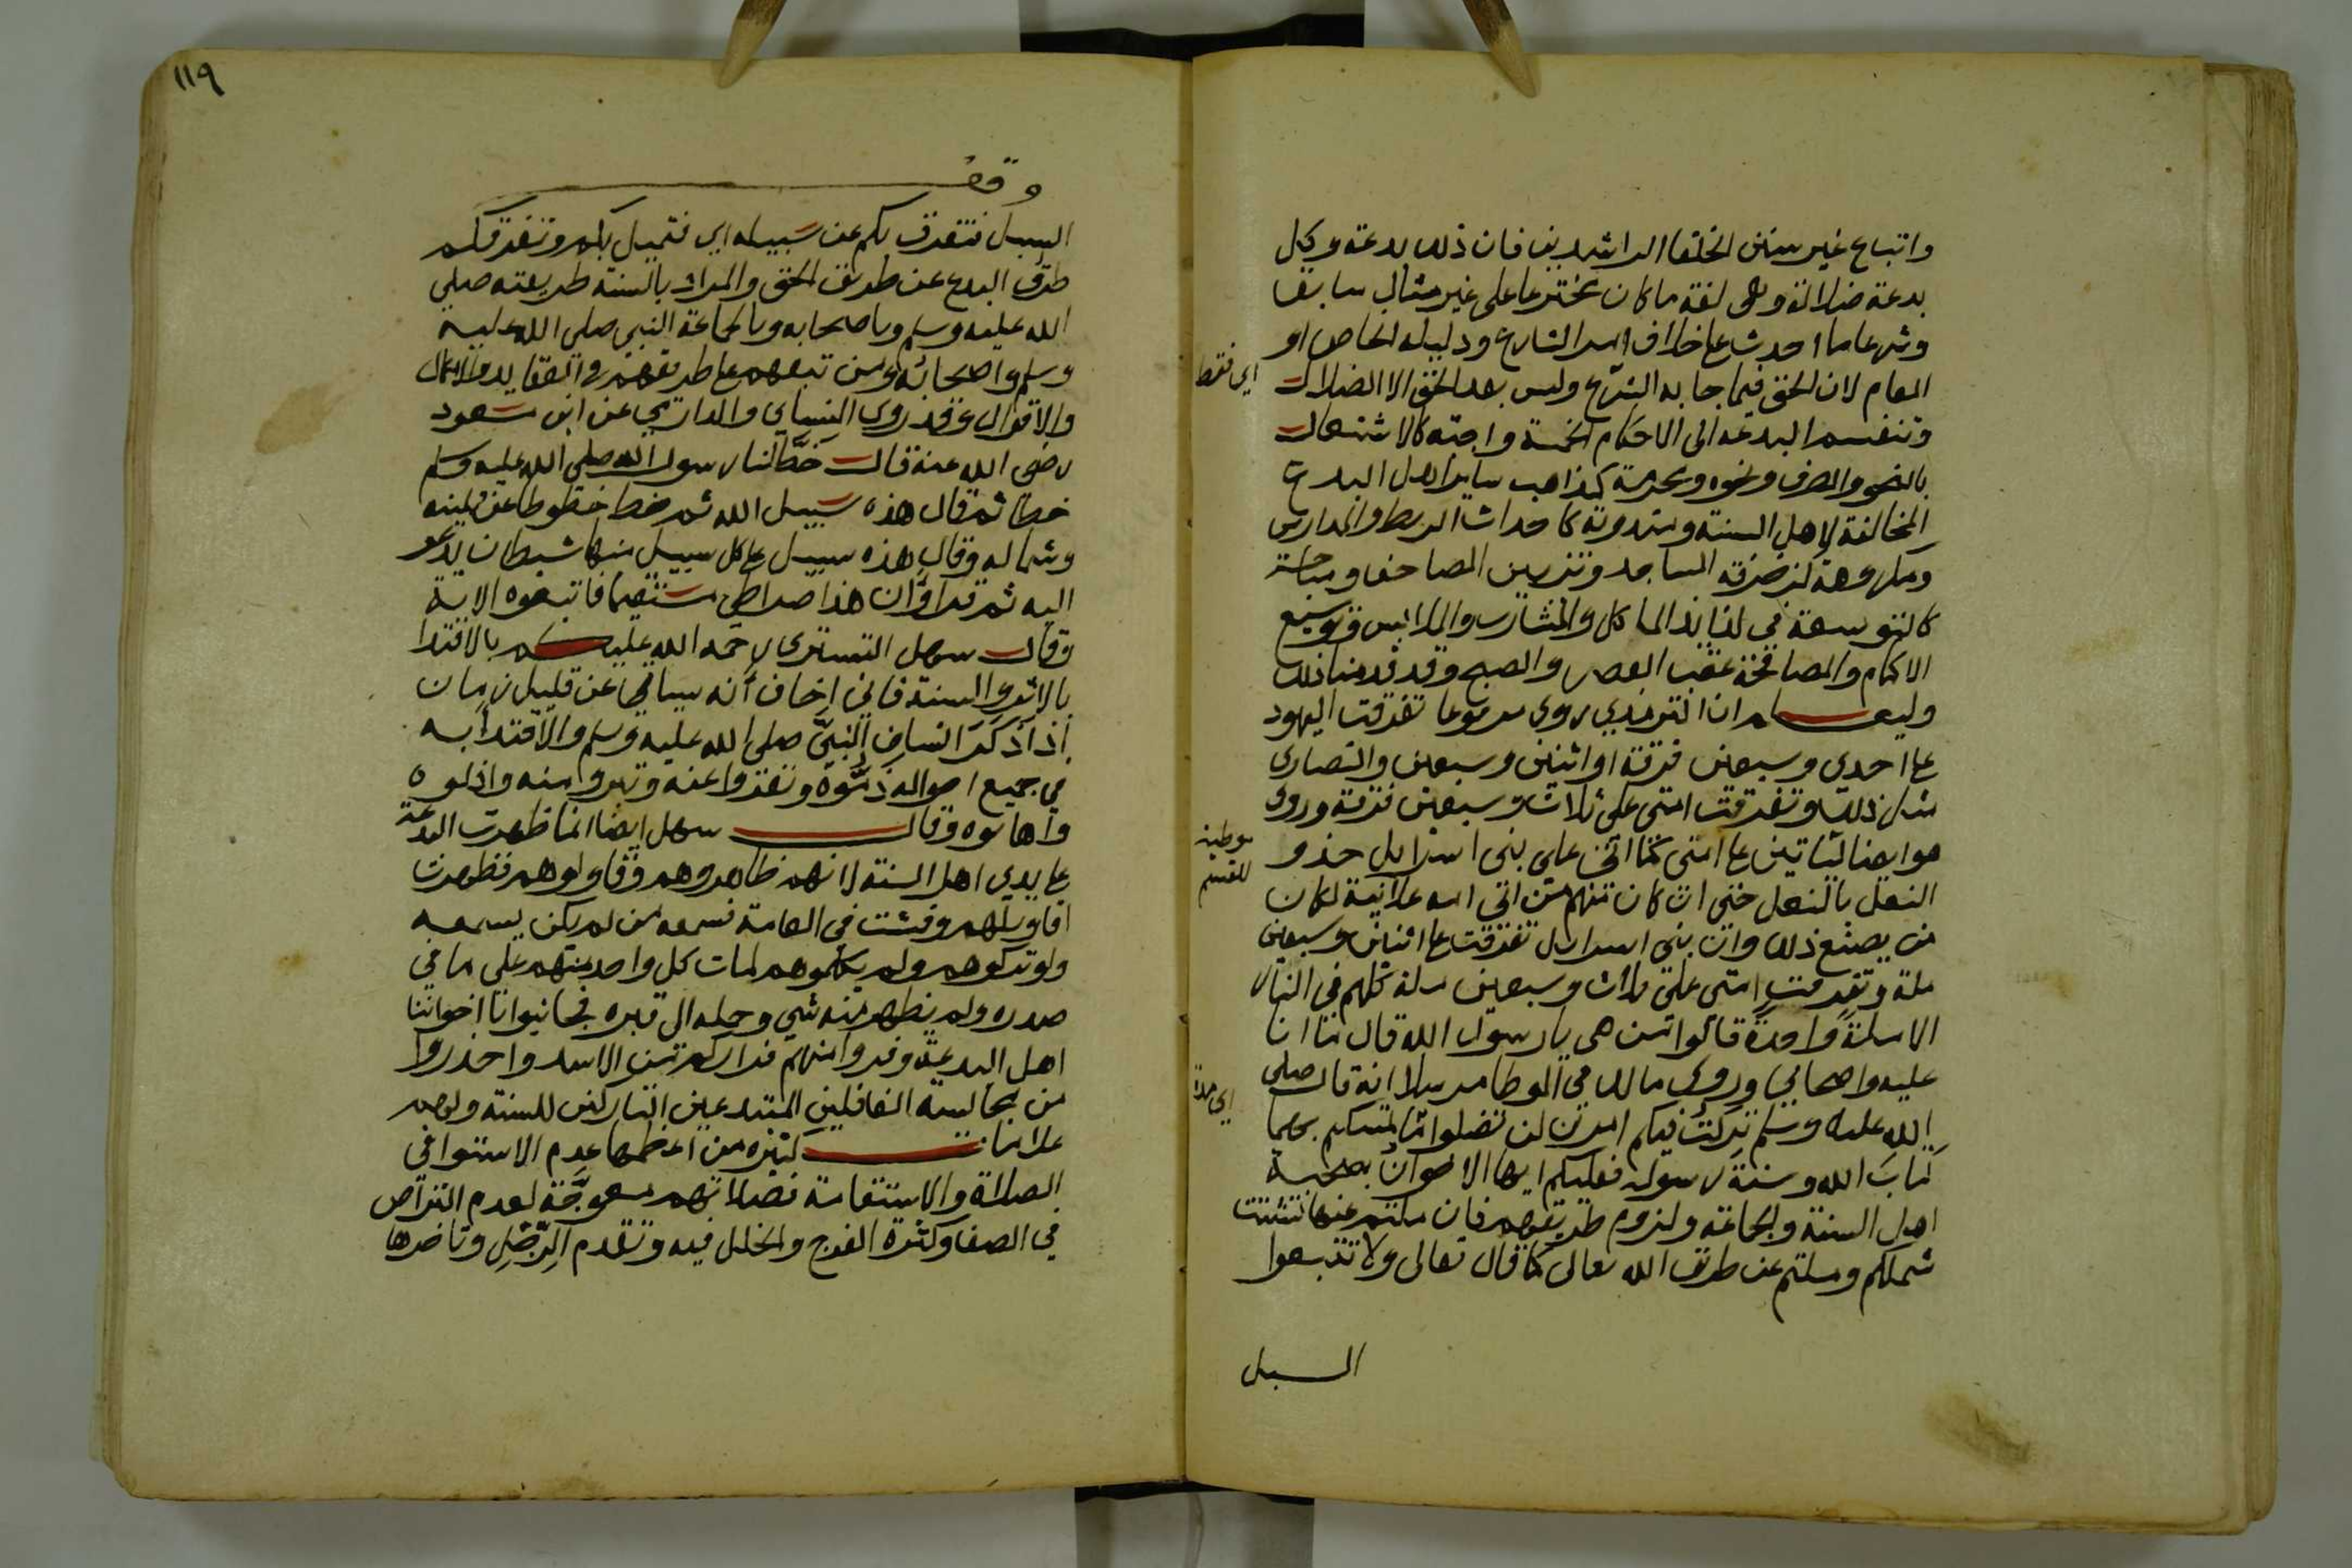 واتباع غير سنن الخلفا الراشدين فان ذلك بدعة وكل
بدعة ضلالة وهي لغة ما كان مخترعا على غير مثال سابق
وشرعا ما احدث على خلاف امر الشارع ودليله الخاص او
العام لان الحق فيما جا به الشرع وليس بعد الحق الا الضلال
اي فقط
وتنقسم البدعة الى الاحكام الخمسة واجبة كالاشتغال
بالنحو والصرف ونحوه ومحرمة كمذاهب ساير اهل البدع
المخالفة لاهل السنة ومندوبة كاحداث الربط والمدارس
ومكروهة كزخرفة المساجد وتزيين المصاحف ومباحة
كالتوسعة في لذايذ الماكل والمشارب والملابس وتوسيع
الاكمام والمصافحة عقب العصر والصبح وقد قدمنا ذلك
وليعلم ان الترمذي روى مرفوعا تفرقت اليهود
على احدى وسبعين فرقة او اثنين وسبعين والنصارى
مثل ذلك وتفرقت امتي على ثلاث وسبعين فرقة وروى
هو ايضا لياتين على امتي كما اتى على بني اسرايل حذو
موطية للقسم
النعل بالنعل حتى ان كان منهم من اتى امه علانية لكان
من يصنع ذلك وان بني اسرايل تفرقت على اثنين وسبعين
ملة وتفرقت امتي على ثلاث وسبعين ملة كلهم في النار
الا ملة واحدة قالوا من هي يا رسول الله قال ما انا
عليه واصحابي وروى مالك في الموطا مرسلا انه قال صلى
الله عليه وسلم تركت فيكم امرين لن تضلوا ما تمسكم بهما
اي مدة
كتاب الله وسنة رسوله فعليكم ايها الاخوان بصحبة
اهل السنة والجماعة ولزوم طريقهم فان ملتم عنها تشتت
شملكم وملتم عن طريق الله تعالى كما قال تعالى ولا تتبعوا
السبل
١١٩
وقف
السبل فتفرق بكم عن سبيله اي فتميل بكم وتفرقكم
طرق البدع عن طريق الحق والمراد بالسنة طريقته صلى
الله عليه وسلم وباصحابه وبالجماعة النبي صلى الله عليه
وسلم واصحابه ومن تبعهم على طريقهم في العقايد والاعمال
والاقوال وقد روى النسائي والدارمي عن ابن مسعود
رضي الله عنه قال خط لنا رسول الله صلى الله عليه وسلم
خطا ثم قال هذه سبيل الله ثم خط خطوطا عن يمينه
وشماله وقال هذه سبيل على كل سبيل منها شيطان يدعو
اليه ثم قرا وان هذا صراطي مستقيما فاتبعوه الاية
وقال سهل التستري رحمه الله عليكم بالاقتدا
بالاثر والسنة فاني اخاف انه سياتي عن قليل زمان
اذا ذكر انسان النبي صلى الله عليه وسلم والاقتدا به
في جميع احواله ذموه ونفروا عنه وتبروا منه واذلوه
واهانوه وقال سهل ايضا انما ظهرت البدعة
على يدي اهل السنة لانهم ظاهروهم وقاولوهم فظهرت
اقاويلهم وفشت في العامة فسمعه من لم يكن يسمعه
ولو تركوهم ولم يكلموهم لمات كل واحد منهم على ما في
صدره ولم يظهر منه شي وحمله الى قبره فجانبوا يا اخواننا
اهل البدعة وفروا منهم فراركم من الاسد واحذروا
من مجالسة الغافلين المبتدعين التاركين للسنة ولهم
علامات كثيره من اعظمها عدم الاستوا في
الصلاة والاستقامة فصلاتهم معوجة لعدم التراص
في الصف وكثرة الفرج والخلل فيه وتقدم الرجل وتاخرها